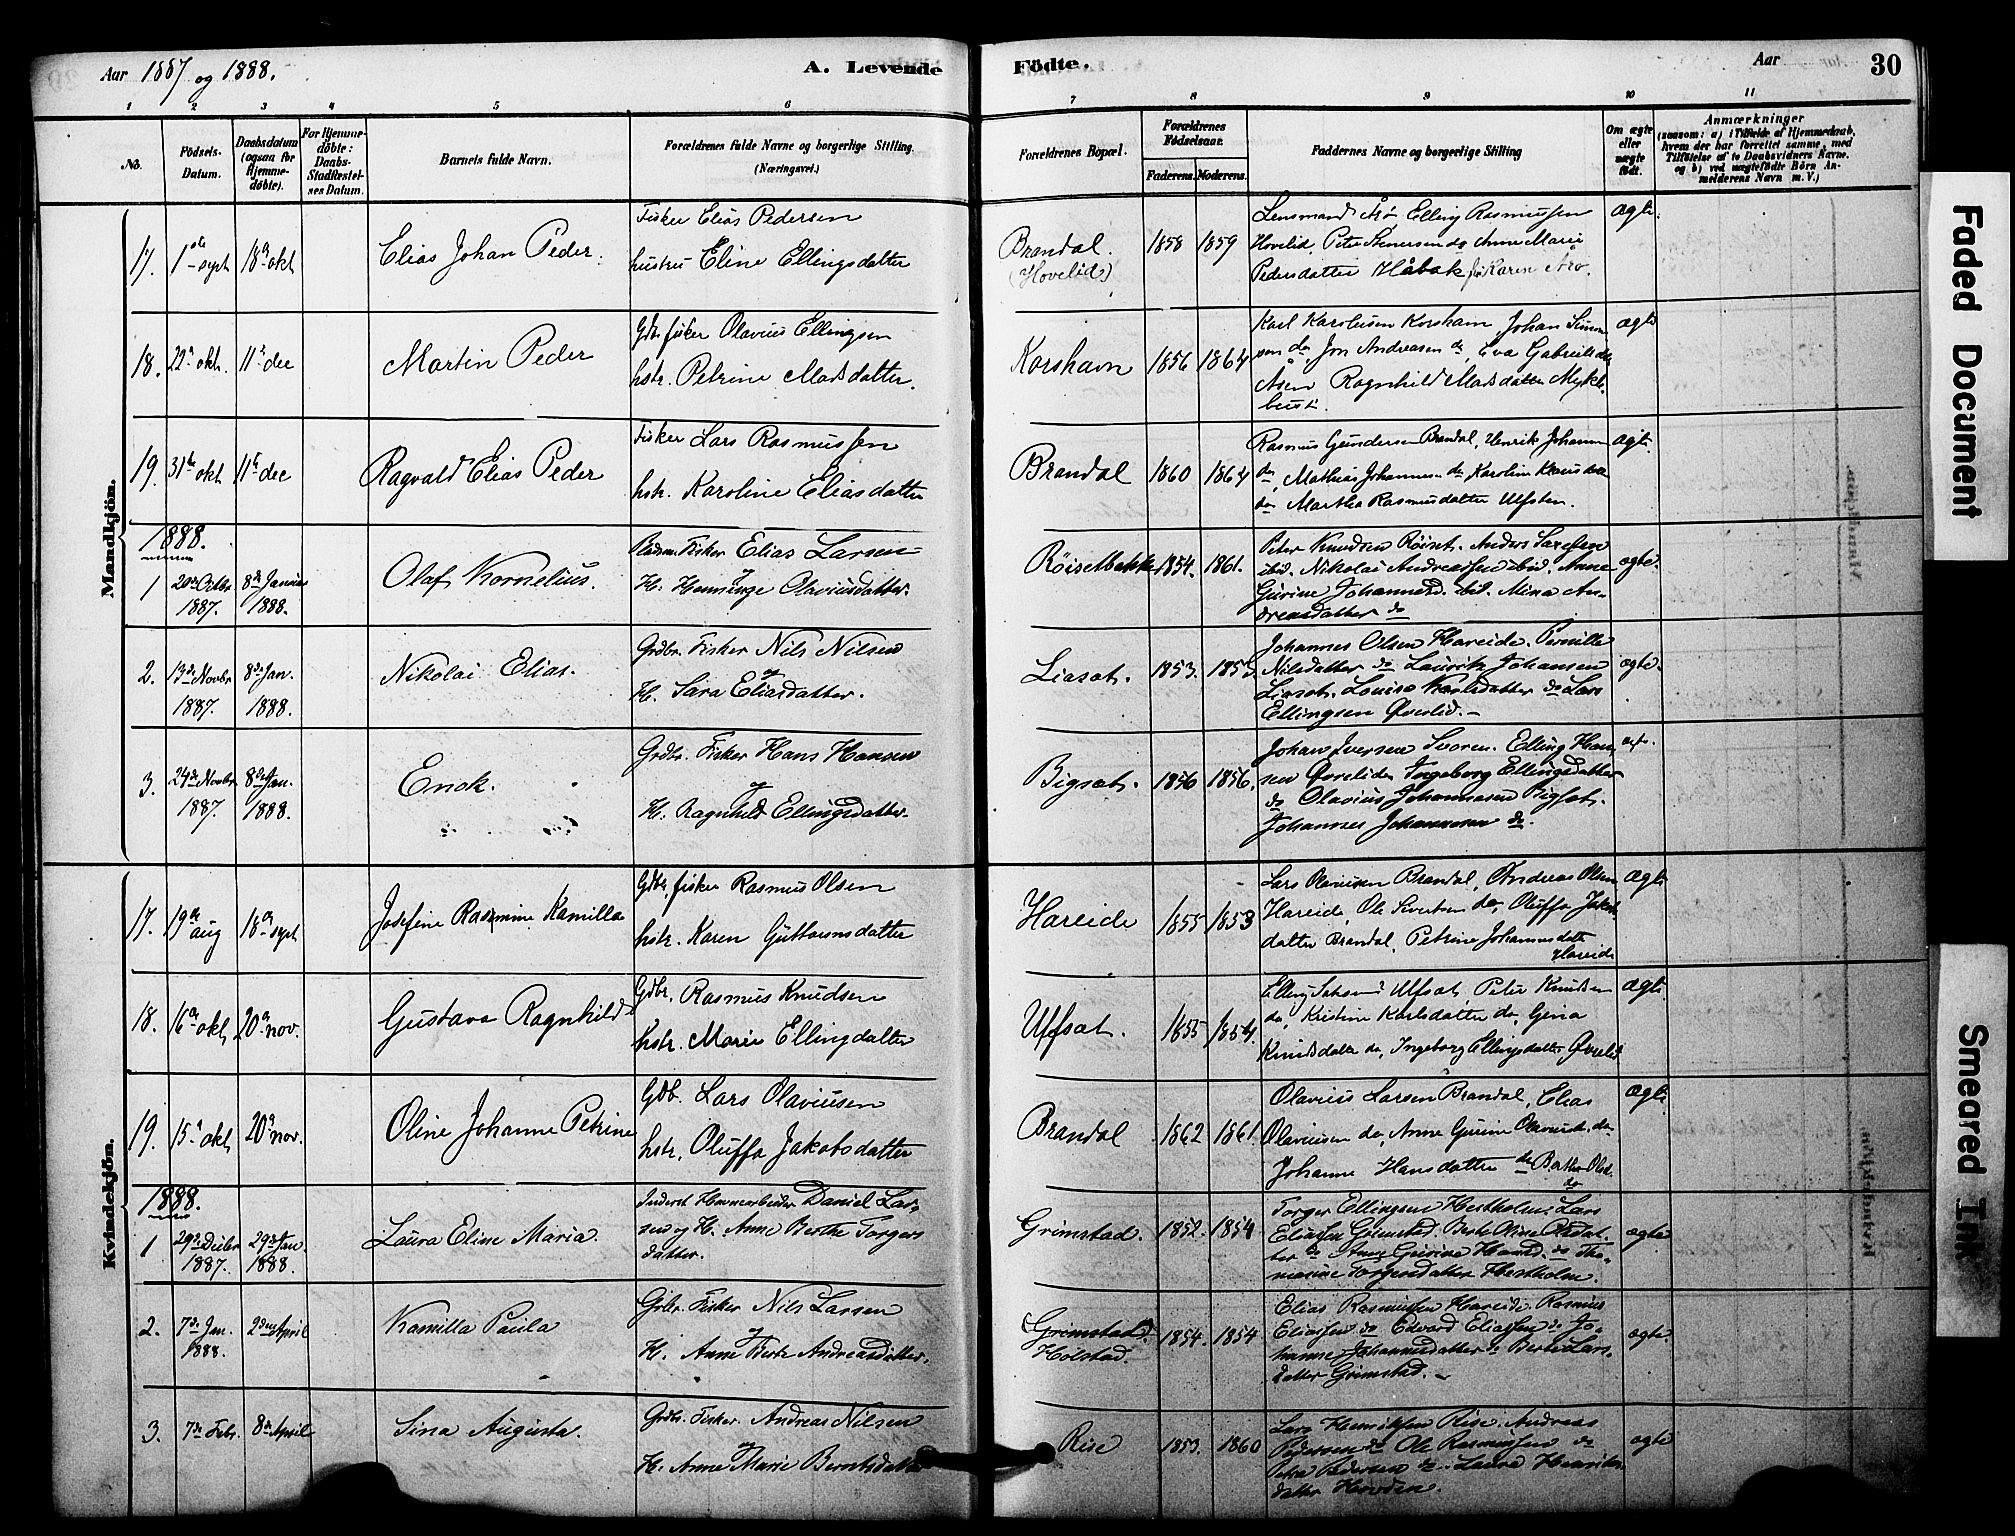 Aar 1887 og 1888.
A. Levende
Födte.
Aar
30
1 2 3 4 5 6 7 8 9 10 11
No.
Födsels-
Datum.
Daabsdatum
(ogsaa for
Hjemme-
döbte).
For Hjemme-
döbte:
Daabs-
Stadfæstel-
ses Datum.
Barnets fulde Navn.
Forældrenes fulde Navne og borgerlige Stilling.
(Næringsvei.)
Forældrenes Bopæl.
Forældrenes
Födselsaar.
Faderens. Moderens.
Faddernes Navne og borgerlige Stilling
Om ægte
eller
uægte
födt.
Anmærkninger
(saasom: a) i Tilfælde af Hjemmedaab,
hvem der har forrettet samme, med
Tilföielse af to Daabsvidners Navne.
og b) ved uægtefödte Börn An-
melderens Navn m. V.)
Mandkjön.
17. 1ste sept 18de okt
Elias Johan Peder.
Fisker Elias Pedersen
hustru Eline Ellingsdatter
Brandal.
(Hovelid)
1858 1859
Lensmand Arø Elling Rasmussen
Hovelid, Peter Stenersen do Anne Marie
Pedersdatter Håbak Karen Arø.
ægte.
18. 22de okt. 11te dec
Martin Peder
Gdbr. fisker Olavius Ellingsen
hstr. Petrine Madsdatter.
Korshavn
1856 1864
Karl Karolusen Korshavn, Johan Simon
sen do, Jon Andreasen do, Eva Gabrielsdtr
Åsen Ragnhild Madsdatter Mykle-
bust.
ægte
19. 31te okt 11te dec
Ragvald Elias Peder
Fisker Lars Rasmussen
hstr. Karoline Eliasdatter
Brandal
1860 1864
Rasmus Gundersen Brandal, Henrik Johannes
do, Mathias Johannesen do, Karoline
do Martha Rasmusdatter Ulfsten.
ægte.
1888.
1 20de Octbr 1887. 8de Januar 1888.
Olaf Kornelius.
Pladsm. Fisker Elias Larsen
og
H. Olaviusdatter.
Røisetbakke
1854. 1861.
Peter Knudsen Røiset. Anders
ibid. Nikolai Andreassen ibid. Anne
Gurine Johannesd. ibid. Mina An-
dreasdatter do
ægte.
2. 13de Novbr 1887. 8de Jan. 1888.
Nikolai Elias.
Grdbr. Fisker Nils Nilsen
og
H. Sara Eliasdatter.
Liasæt.
1853. 1855.
Johannes Olsen Hareide. Pernille
Nilsdatter do Lauritz Johansen
Liasæt. Louise Karlsdatter do Lars
Ellingsen Øverlid.
ægte.
3. 24de Novbr 1887. 8de Jan. 1888.
Enok.
Grdbr. Fisker Hans Hansen
og
H. Ragnhild Ellingsdatter.
Bigsæt.
1856 1856.
Johan Iversen Svoren. Elling Han-
sen Øverlid. Ingeborg Ellingsdatter
do Olavius Johannesen Bigsæt.
Johannes Johannesen do.
ægte.
Kvindekjön.
17. 19de aug 18de sept
Josefine Rasmine Kamilla
Gdbr. fisker Rasmus Olsen
hstr. Karen Guttormsdatter
Hareide
1855 1853
Lars Olaviusen Brandal, Andreas Olsen
Hareide, Ole Sivertsen do, Oluffa Jakob
datter Brandal, Petrine Johannesdatter
Hareide
ægte
18. 16de okt 20de nov.
Gustava Ragnhild
Gdbr. Rasmus Knudsen
hstr. Marie Ellingdatter
Ulfsæt.
1855 1854.
Elling Ulfsæt, Peter Knudsen
do, Kristine Karlsdatter do, Gina
Knudsdatter do, Ingeborg Ellingsdatter Øverlid
ægte.
19. 15de okt 20de nov.
Oline Johanne Petrine
Gdb. Lars Olaviusen
hstr. Oluffa Jakobsdatter
Brandal
1862 1861
Olavius Larsen Brandal, Elias
Olaviusen do, Anne Gurine Olaviusd. do
Johanne Hansdatter do Berthe Olsd.
do
ægte.
1888.
1 29de Decbr 1887. 29de Jan 1888.
Laura Eline Maria.
Inderst Daniel Lar-
sen og H. Anne Berthe Torgers
datter.
Grimstad.
1852. 1854
Torger Ellingsen Hestholm. Lars
Eliassen Grimstad. Berte Oline Olsdat-
ter do Anne Gurine do Tho-
masine Torgersdatter Hestholm.
ægte
2. 7de Jan. 1888. 2den April
Kamilla Paula
Grdbr. Fisker Nils Larsen
og
H. Anne Berte Andreasdatter.
(Grimstad)
Holstad.
1854. 1854
Elias Rasmussen Hareide. Rasmus
Eliassen do Edvard Eliassen do Jo-
hanne Johannesdatter do Berte Lars-
datter Grimstad.
ægte.
3. 7de Febr. 8de April
Sina Augusta.
Grdbr. Fisker. Andreas Nilsen
og
H. Anne Marie Berntsdatter
Rise
1853. 1860
Lars Henriksen Rise. Andreas
Pedersen do Ole Rasmussen do
Petra Pedersen do. Laura Henriks-
datter Hovden.
ægte
Faded Document
Smeared Ink